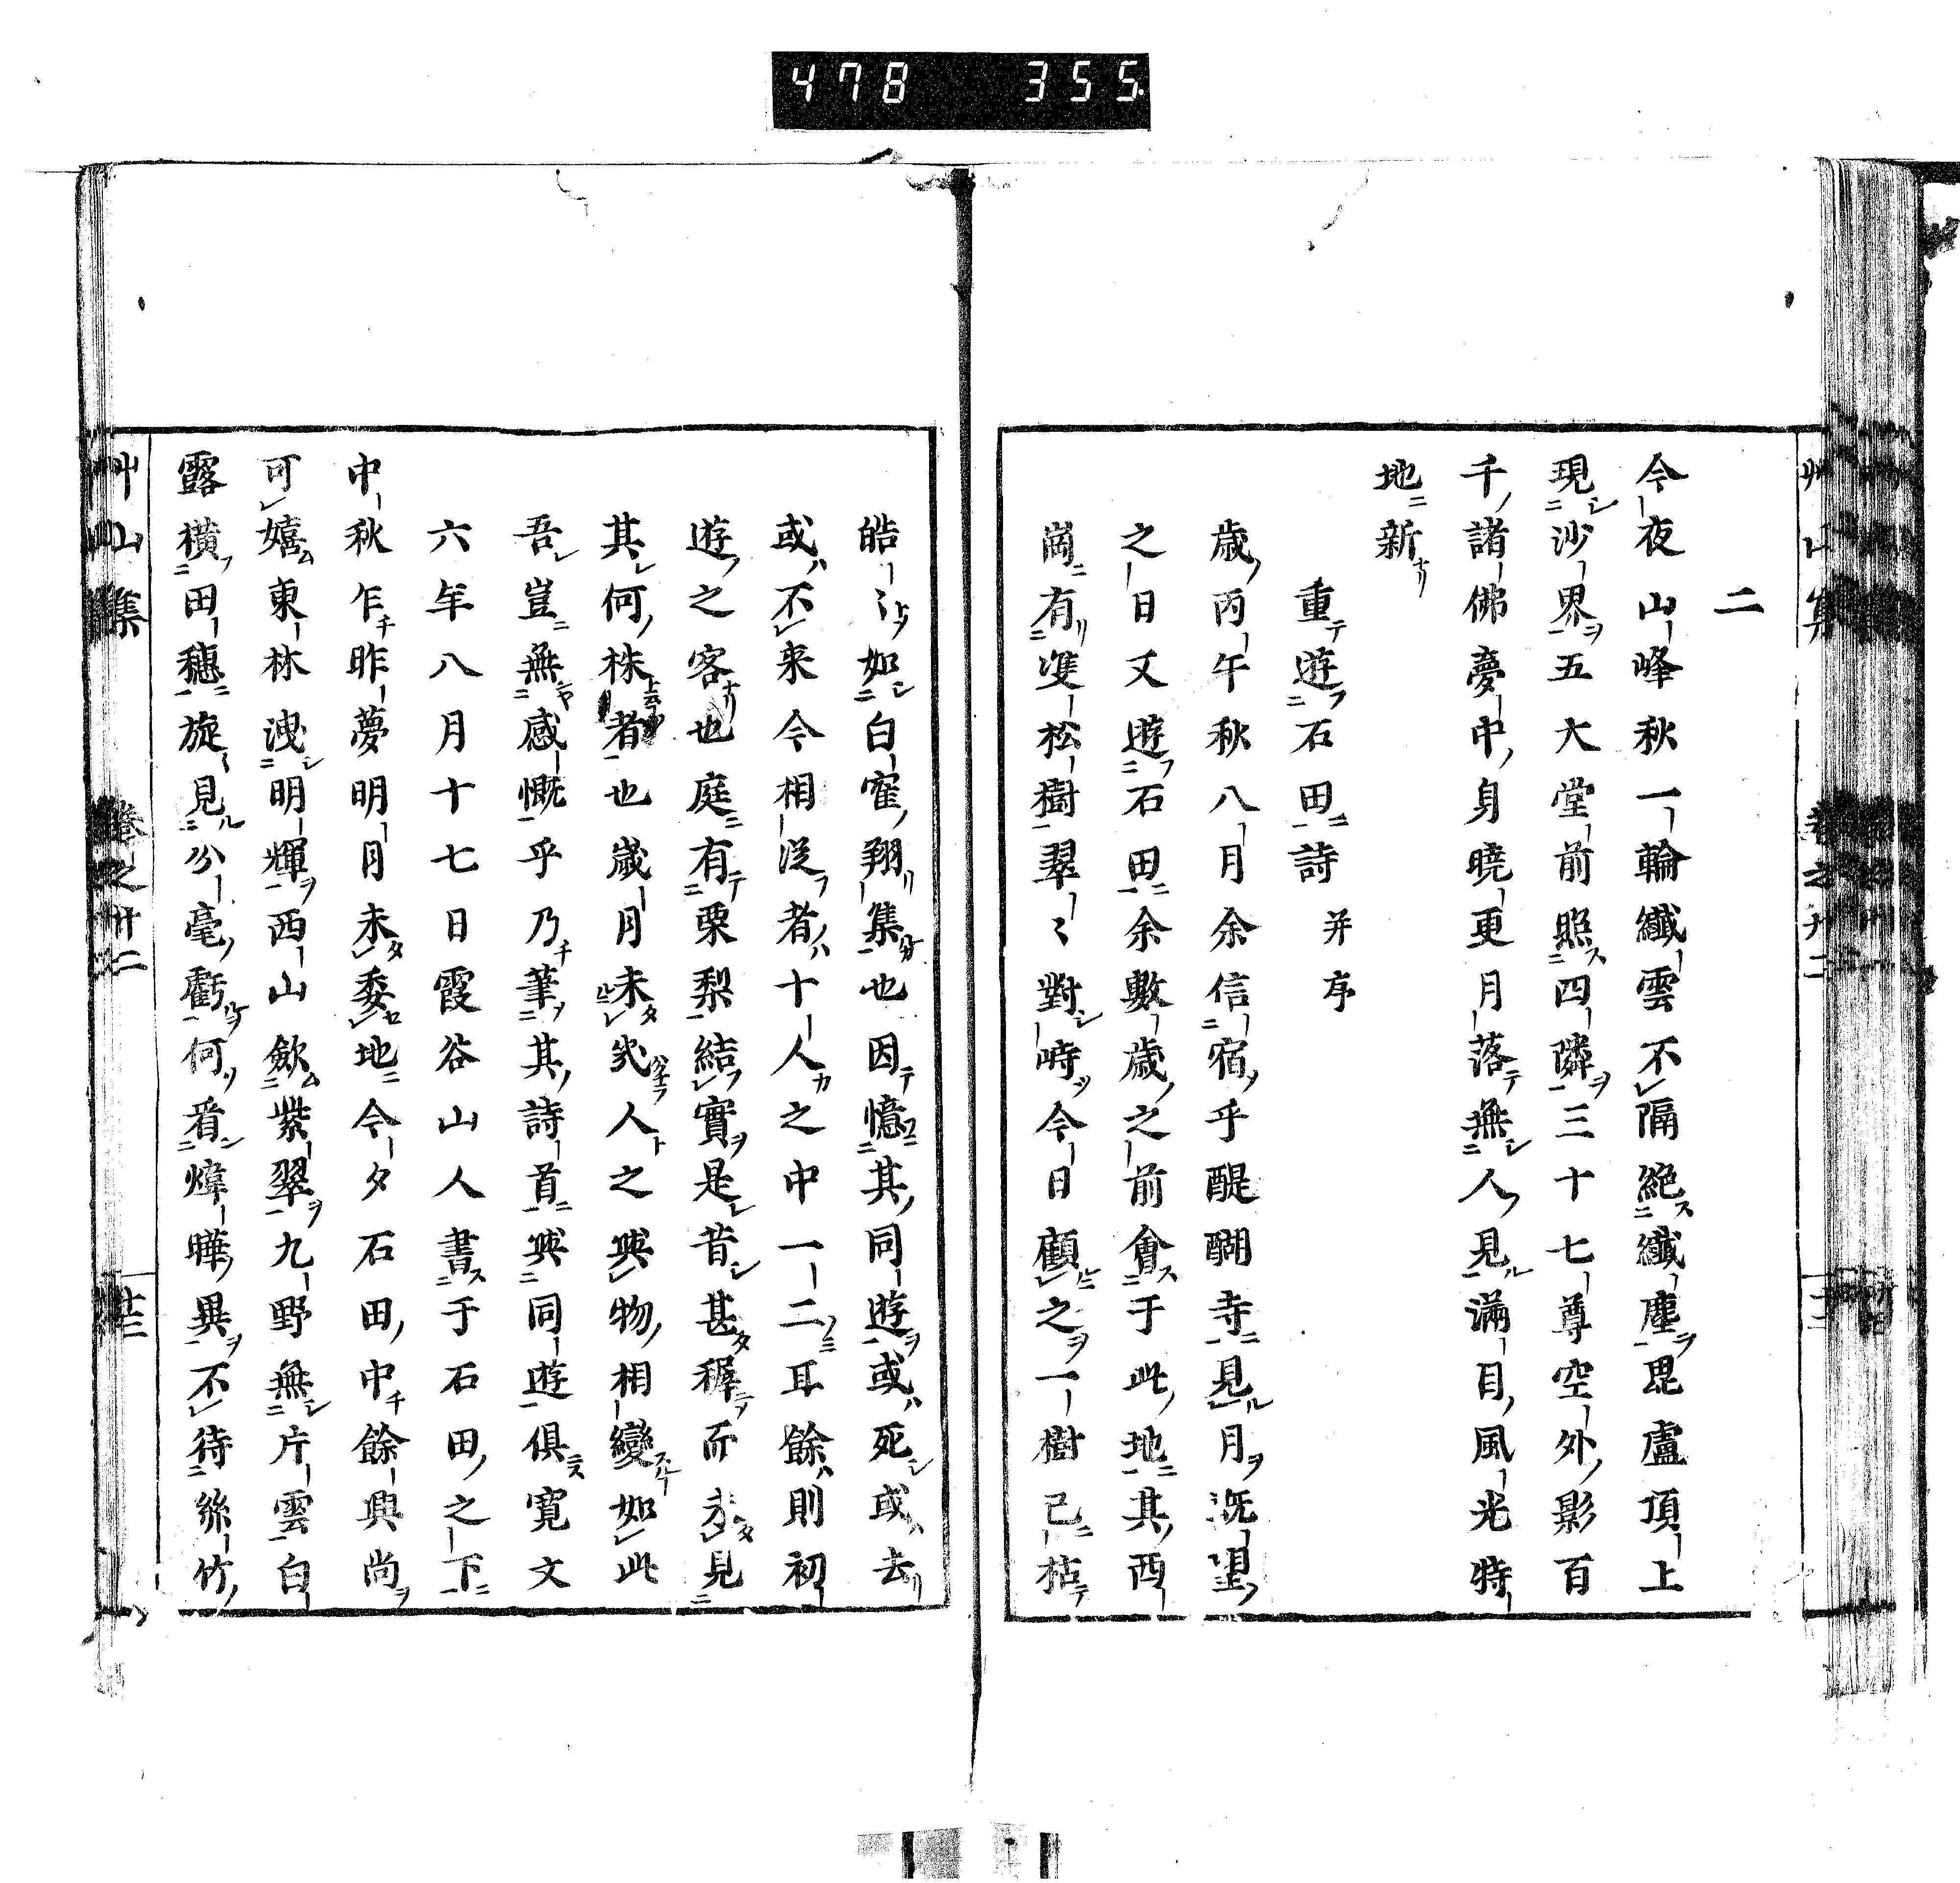 478 355
二
今夜山峰秋一輪纖雲不隔絕纖塵毘盧頂上
現沙界五大堂前照四隣三十七尊空外影百
千諸佛夢中身曉更月落無人見滿目風光特
地新
重遊石田詩 并序
歲丙午秋八月余信宿乎醍醐寺見月既望
之日又遊石田余數歲之前會于此地其西
崗有雙松樹翠〻對峙今日顧之一樹已枯
皓〻如白寉翔集也因憶其同遊或死或去
或不来今相從者十人之中一二耳餘則初
遊之客也庭有栗梨結實是昔甚穉而未見
其何株者也歲月未幾人之與物相變如此
吾豈無感慨乎乃筆其詩首與同遊俱寬文
六年八月十七日霞谷山人書于石田之下
中秋乍昨夢明月未委地今夕石田中餘興尚
可嬉東林洩明輝西山歛紫翠九野無片雲白
露橫田穗旋見分毫虧何看煒曄異不待絲竹
艸山集 卷之廿二 十三